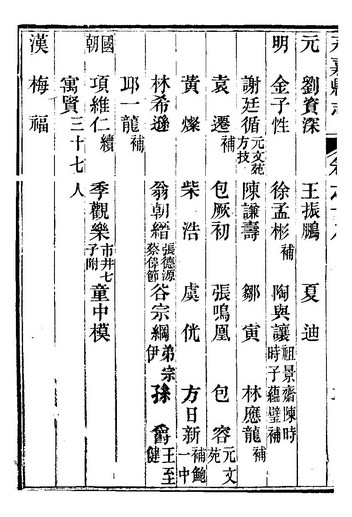 元 劉資深 王振鵬 夏迪
明 金子性 徐孟彬補 陶與讓祖景齋陳時時子蘊璧補
謝廷循元文苑方技 陳謙壽 鄒寅 林應龍補
袁遷補 包厥初 張鳴鳳 包容元文苑
黃燦 柴浩 虞侊 方日新補鮑一中
林希遜 翁朝縉張德源蔡偉節 谷宗綱弟宗伊 孫爵王至健
邱一龍補
國朝 項維仁續 季觀樂市井七子附 童中模
寓賢三十七人
漢 梅福